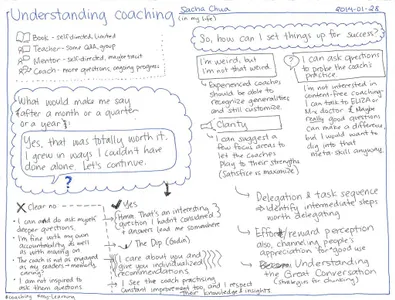 Understanding coaching
(in my life)
Sacha Chua
2014-01-28
Book - self-directed, limited
Teacher - some Q&A, group
Mentor - self-directed,
Coach - more questions, ongoing progress
What would make me say
after a month or a quarter
or a year:
Yes, that was totally worth it.
I grew in ways I couldn't have
done alone. Let's continue.
?
Clear no
• I can do ask myself
deeper questions.
• I'm fine with my own
accountability as well
as with moving on
• The coach is not as engaged
as my readers -
caring?
• I am not inspired to
ask them questions
Yes
Hmm. That's an interesting
question I hadn't considered
+ answers lead me somewhere
The Dip (Godin)
I care about you and
give you individualized
recommendations
I see the coach practising
constant improvement too, and I respect
their knowledge & insights.
So, how can I set things up for success?
I'm weird, but
I'm not that weird
Experienced coaches
should be able to
recognize generalities
and still customize.
Clarity
I can suggest a
few focus areas to
let the coaches
play to their strengths
(Satisfice vs maximize)
? I can ask questions
to probe the coach's
practice.
I'm not interested in
content-free coaching-
I can talk to ELIZA or
Mrs doctor & maybe
really good questions
can make a difference,
but I would want to
dig into that
meta-skill anyway.
Delegation & task sequence
Identify intermediate steps
worth delegating
Effort/reward perception
also, channeling people's
appreciation for good use
Understanding
the Great Conversation
(strategies for chunking)
#coaching #my-learning